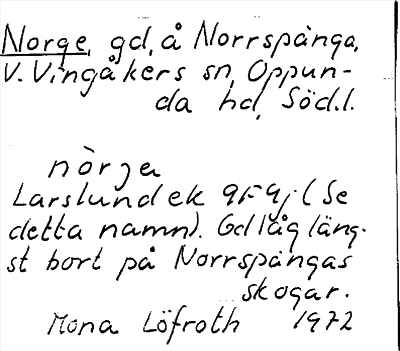 Norge, gd, å Norrspånga,
V. Vingåkers sn, Oppun-
da hd, Södl.
nòrja
Larslund ek 9F 4j (Se
detta namn). Gd låg läng-
st bort på Norrspångas
skogar.
Mona Löfroth 1972